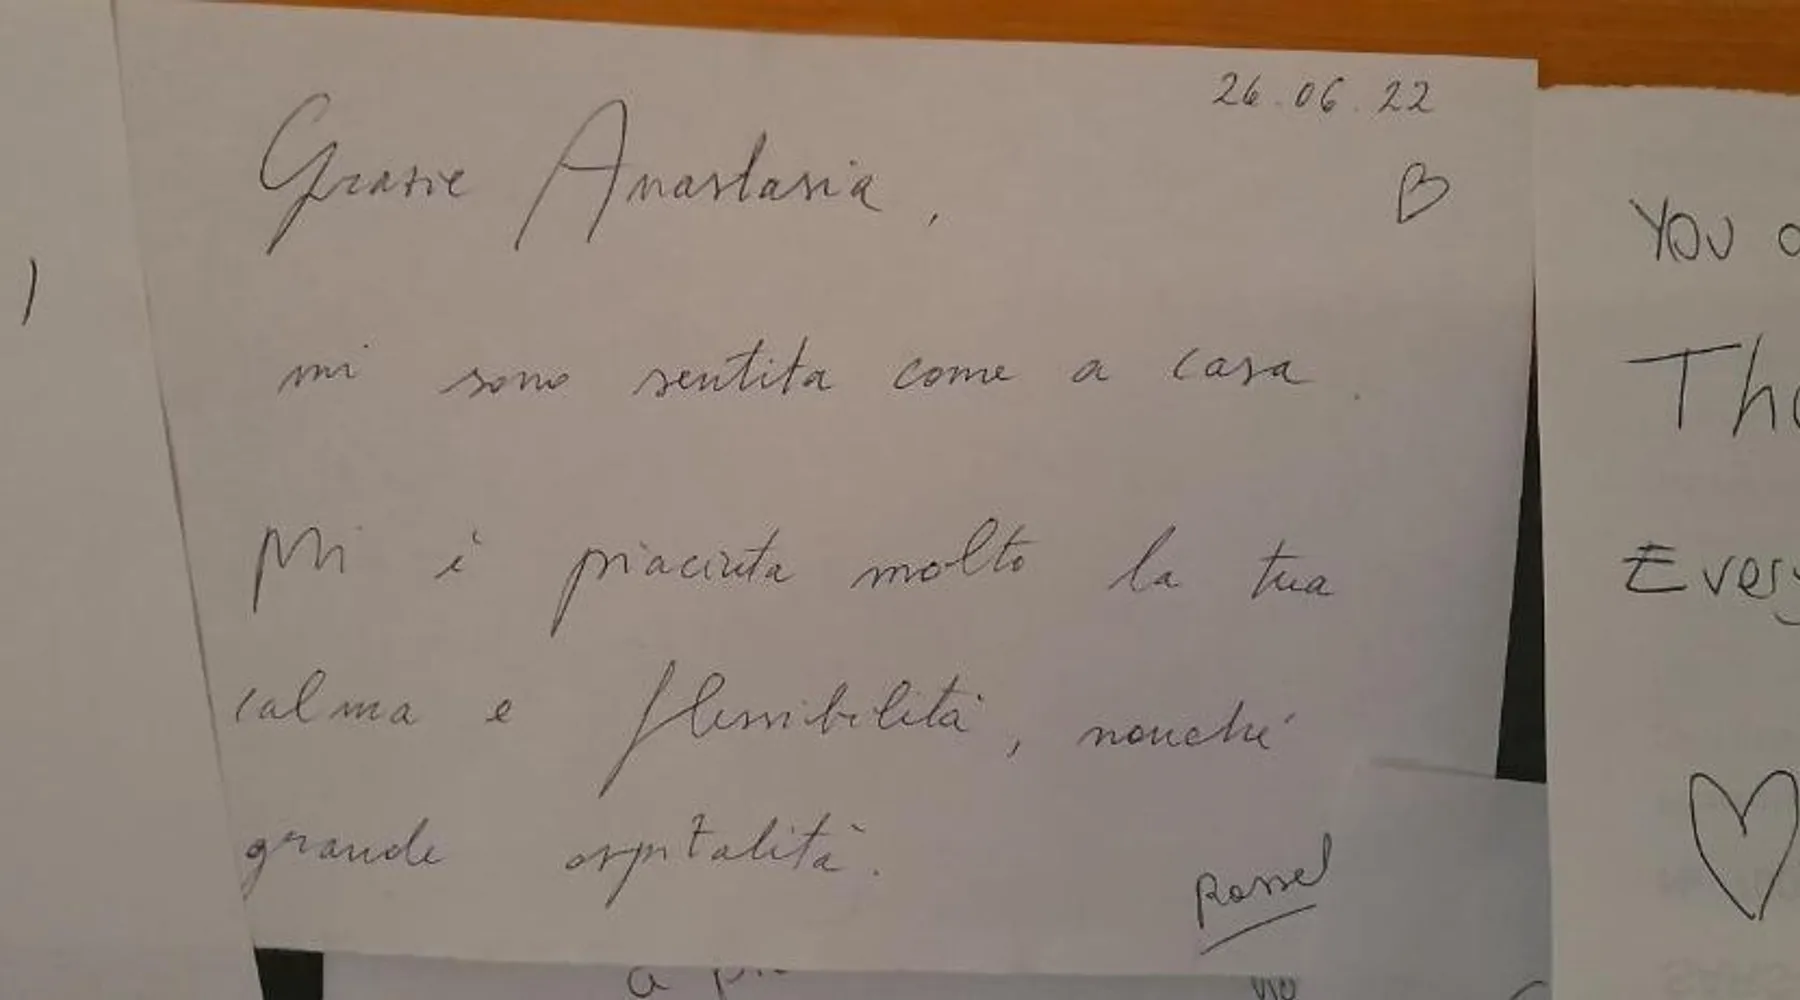 26.06.22
Grazie Anastasia,
mi sono sentita come a casa.
Mi è piaciuta molto la tua
calma e flessibilità, nonché
grande ospitalità.
Rossel
You
Every